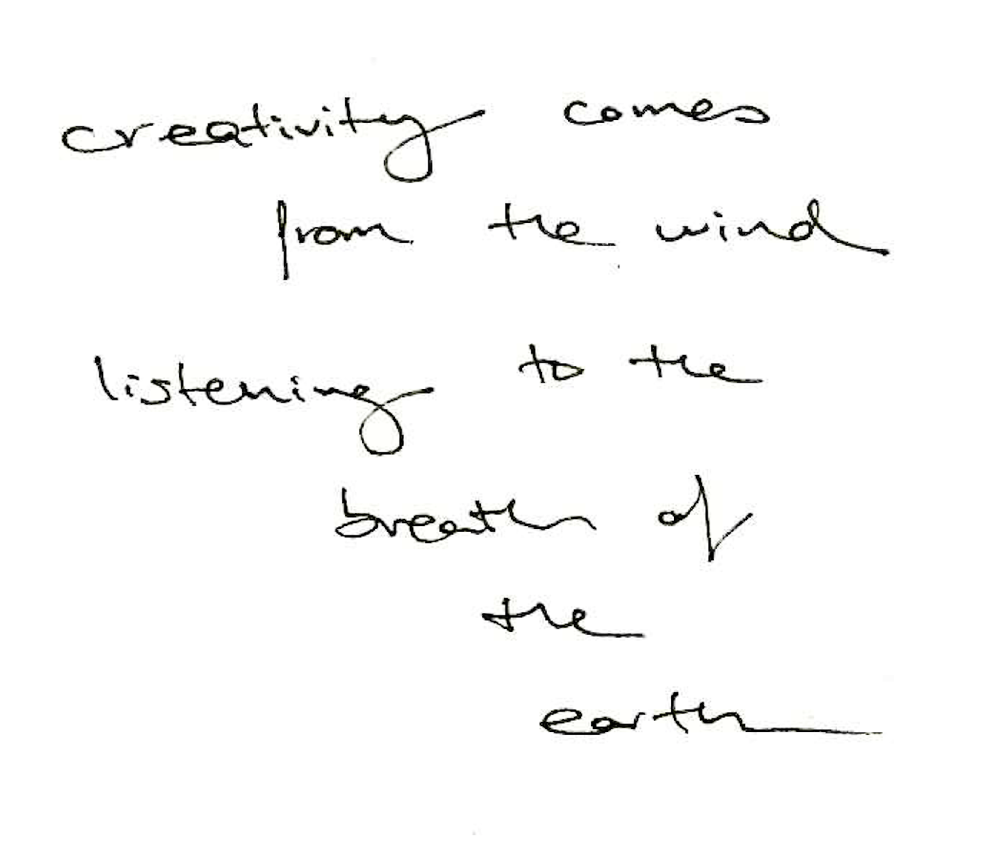 creativity comes
from the wind
listening to the
breath of
the
earth